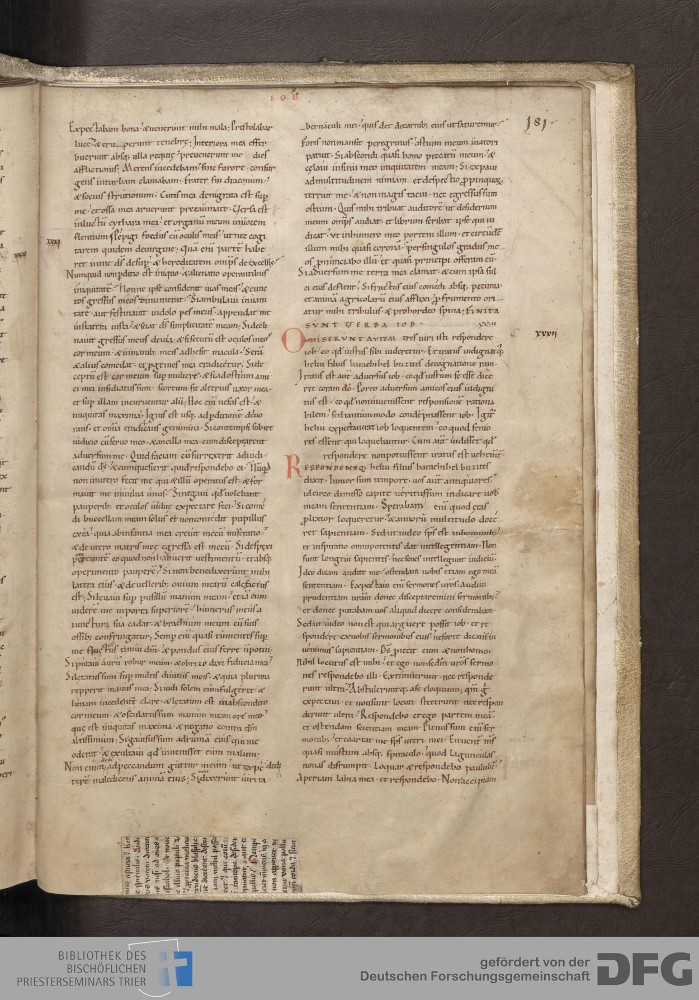 IOB
181
Expectabam bona · & venerunt mihi mala; Prestolabar
lucē · & eruperunt tenebrę; Interiora mea effer
buerunt absq; ulla requie · prevenerunt me dies
afflictionis; Merens incedebam · sine furore · consur
gens in turba clamabam; Frater fui draconum ·
& socius strutionum; Cutis mea denigrata est sup
me · et ossa mea aruerunt
in luctū cythara mea · et organū meum in vocem
flentium
tarem quidem de virgine; Quā enī partē habe
ret in me d̄s desup · & hereditatem om̄ps de excelsis
Numquid non pditio est iniquo · & alienatio operantibus
iniquitatē; Nonne ipse considerat vias meas · & cunc
tos gressus meos dinumerat; Si ambulavi in vani
tate · aut festinavit in dolo pes meus · appendat me
in statera iusta · & sciat d̄s simplicitatē meam; Si decli
navit gressus meus de via · & si secutū est oculos meos
cor meum · & in manib; meis adhesit macula · Serā
& alius comedat · & pgenies mea eradicetur; Si de
ceptū est cor meum sup muliere · & si ad ostium ami
ci mei insidiatus sum · scortum sit alterius uxor mea ·
et sup illam incurventur alii; Hoc enī nefas est · &
iniquitas maxima; Ignis est usq; ad pditionē devo
rans · et omīa eradicans genimina; Si contempsi subire
iudicio cū servo meo · & ancilla mea · cum disceptarent
adversum me · Quid faciam cū surrexerit ad iudi
candū d̄s · & cum quesierit quid respondebo ei; Nūqd
non in utero fecit me qui & illū operatus est · & for
mavit me in vulva unus; Si negavi qđ volebant
pauperib; · et oculos viduę expectare feci; Si come
di buccellam meam solus · et non comedit pupillus
ex ea; quia ab infantia mea crevit mecū miseratio ·
& de utero matris meę egressa est mecū; Si despexi
pereuntē eo quod non habuerit vestimentū · et absq;
operimento pauperē; Si non benedixerunt mihi
latera eius · & de velleribus ovium mearū calefactus
est; Si levavi sup pupillū manum meam · et iā cum
viderē me in porta superiorē · humerus meus a
iunctura sua cadat · & brachium meum cū suis
ossib; confringatur; Semp enī quasi tumentes sup
me fluctus timui dn̄m · & pondus eius ferre n̄ potui;
Si putavi aurū robur meum · & obrizo dixi fiducia mea;
Si lętatus sum sup multis divitiis meis · & quia plurima
repperit manus mea; Si vidi solem cū fulgeret · &
lunam incedentē clare · & lętatum est in abscondito
cor meum · & osculatus sum manum meam ore meo ·
quę est iniquitas maxima · & negatio contra dm̄
altissimum; Si gavisus sum ad ruinā eius qui me
oderat · & exultavi qđ invenisset eum malum;
Non enim dedi ad peccandum guttur meum · ut expetē
rem maledicens animā eius; Si dixerunt viri ta
bernaculi mei · quis det de carnib; eius ut saturemur ·
Foris non mansit peregrinus · ostium meum viatori
patuit; Si abscondi quasi homo peccatū meum · &
cęlavi in sinu meo iniquitatem meam; Si expavi
ad multitudinem nimiam · et despectio propinquoꝝ
terruit me · & non magis tacui · nec egressus sum
ostium; Quis mihi tribuat auditorē ut desiderium
meum om̄ps audiat · et librum scribat ipse qui iu
dicat · ut in humero meo portem illum · et circūdē
illum mihi quasi coronā; per singulos gradus me
os pnuntiabo illū · et quasi principi offeram eū;
Si adversum me terra mea clamat · & cum ipsa sul
ci eius deflent; Si fructus eius comedi absq; pecunia ·
et animā agricolarū eius afflixi · p frumento ori
atur mihi tribulus · & p hordeo spina; FINITA
SUNT VERBA IOB ·
XXXII
XXXVII
OMISERUNT AUTEM tres viri isti respondere
iob · eo qđ iustus sibi videretur; Et iratus indignatusq;
heliu filius barachehel buzites de cognatione ram;
Iratus est aut adversus iob · eo qđ iustum se esse dice
ret coram dō · Porro adversum amicos eius indigna
tus est · eo qđ non invenissent responsionē rationa
bilem · sed tantum modo condēpnassent iob; Igit
heliu expectavit iob loquentem · eo quod senio
res essent qui loquebantur · Cum aut vidisset qđ
respondere non potuissent · iratus est vehemt
RESPONDENSQ heliu filius barachehel buzites
dixit · Iunior sum tempore · vos aut antiquiores ·
idcirco dimisso capite veritus sum indicare vob
meam sententiam · Sperabam enī quod etas
plixior loqueretur · & annorū multitudo doce
ret sapientiam · Sed ut video sps est in hominib; ·
et inspiratio omnipotentis dat intellegentiam · Non
sunt longevi sapientes · nec senes intellegunt iudiciū ·
Ideo dicam audite me · ostendam vobis etiam ego meā
sententiam · Expectavi enī sermones vr̄os · Audivi
prudentiam vr̄am donec disceptaremini sermonib; ·
et donec putabam vos aliquid dicere considerabam ·
Sed ut video non est qui arguere possit iob · et re
spondere ex vobis sermonibus eius · ne forte dicatis in
venimus sapientiam · Ds̄ proiecit eum & non homo ·
Nihil locutus est mihi · et ego non sedm̄ vr̄os sermo
nes respondebo illi · Extimuerunt · nec responde
runt ultra · Abstuleruntq; a se eloquium; qm̄ g̊
expectavi · et non sunt locuti · steterunt nec respon
derunt ultra; Respondebo et ego partem meā ·
et ostendam scientiam meam · Plenus sum enī ser
monib; · et coartat me sps uteri mei · En venter ms̄
quasi mustum absq; spiraculo · quod lagunculas
novas disrumpit · Loquar & respondebo paululū ·
Aperiam labia mea · et respondebo · Non accipiam
BIBLIOTHEK DES
BISCHÖFLICHEN
PRIESTERSEMINARS TRIER
gefördert von der
Deutschen Forschungsgemeinschaft
DFG